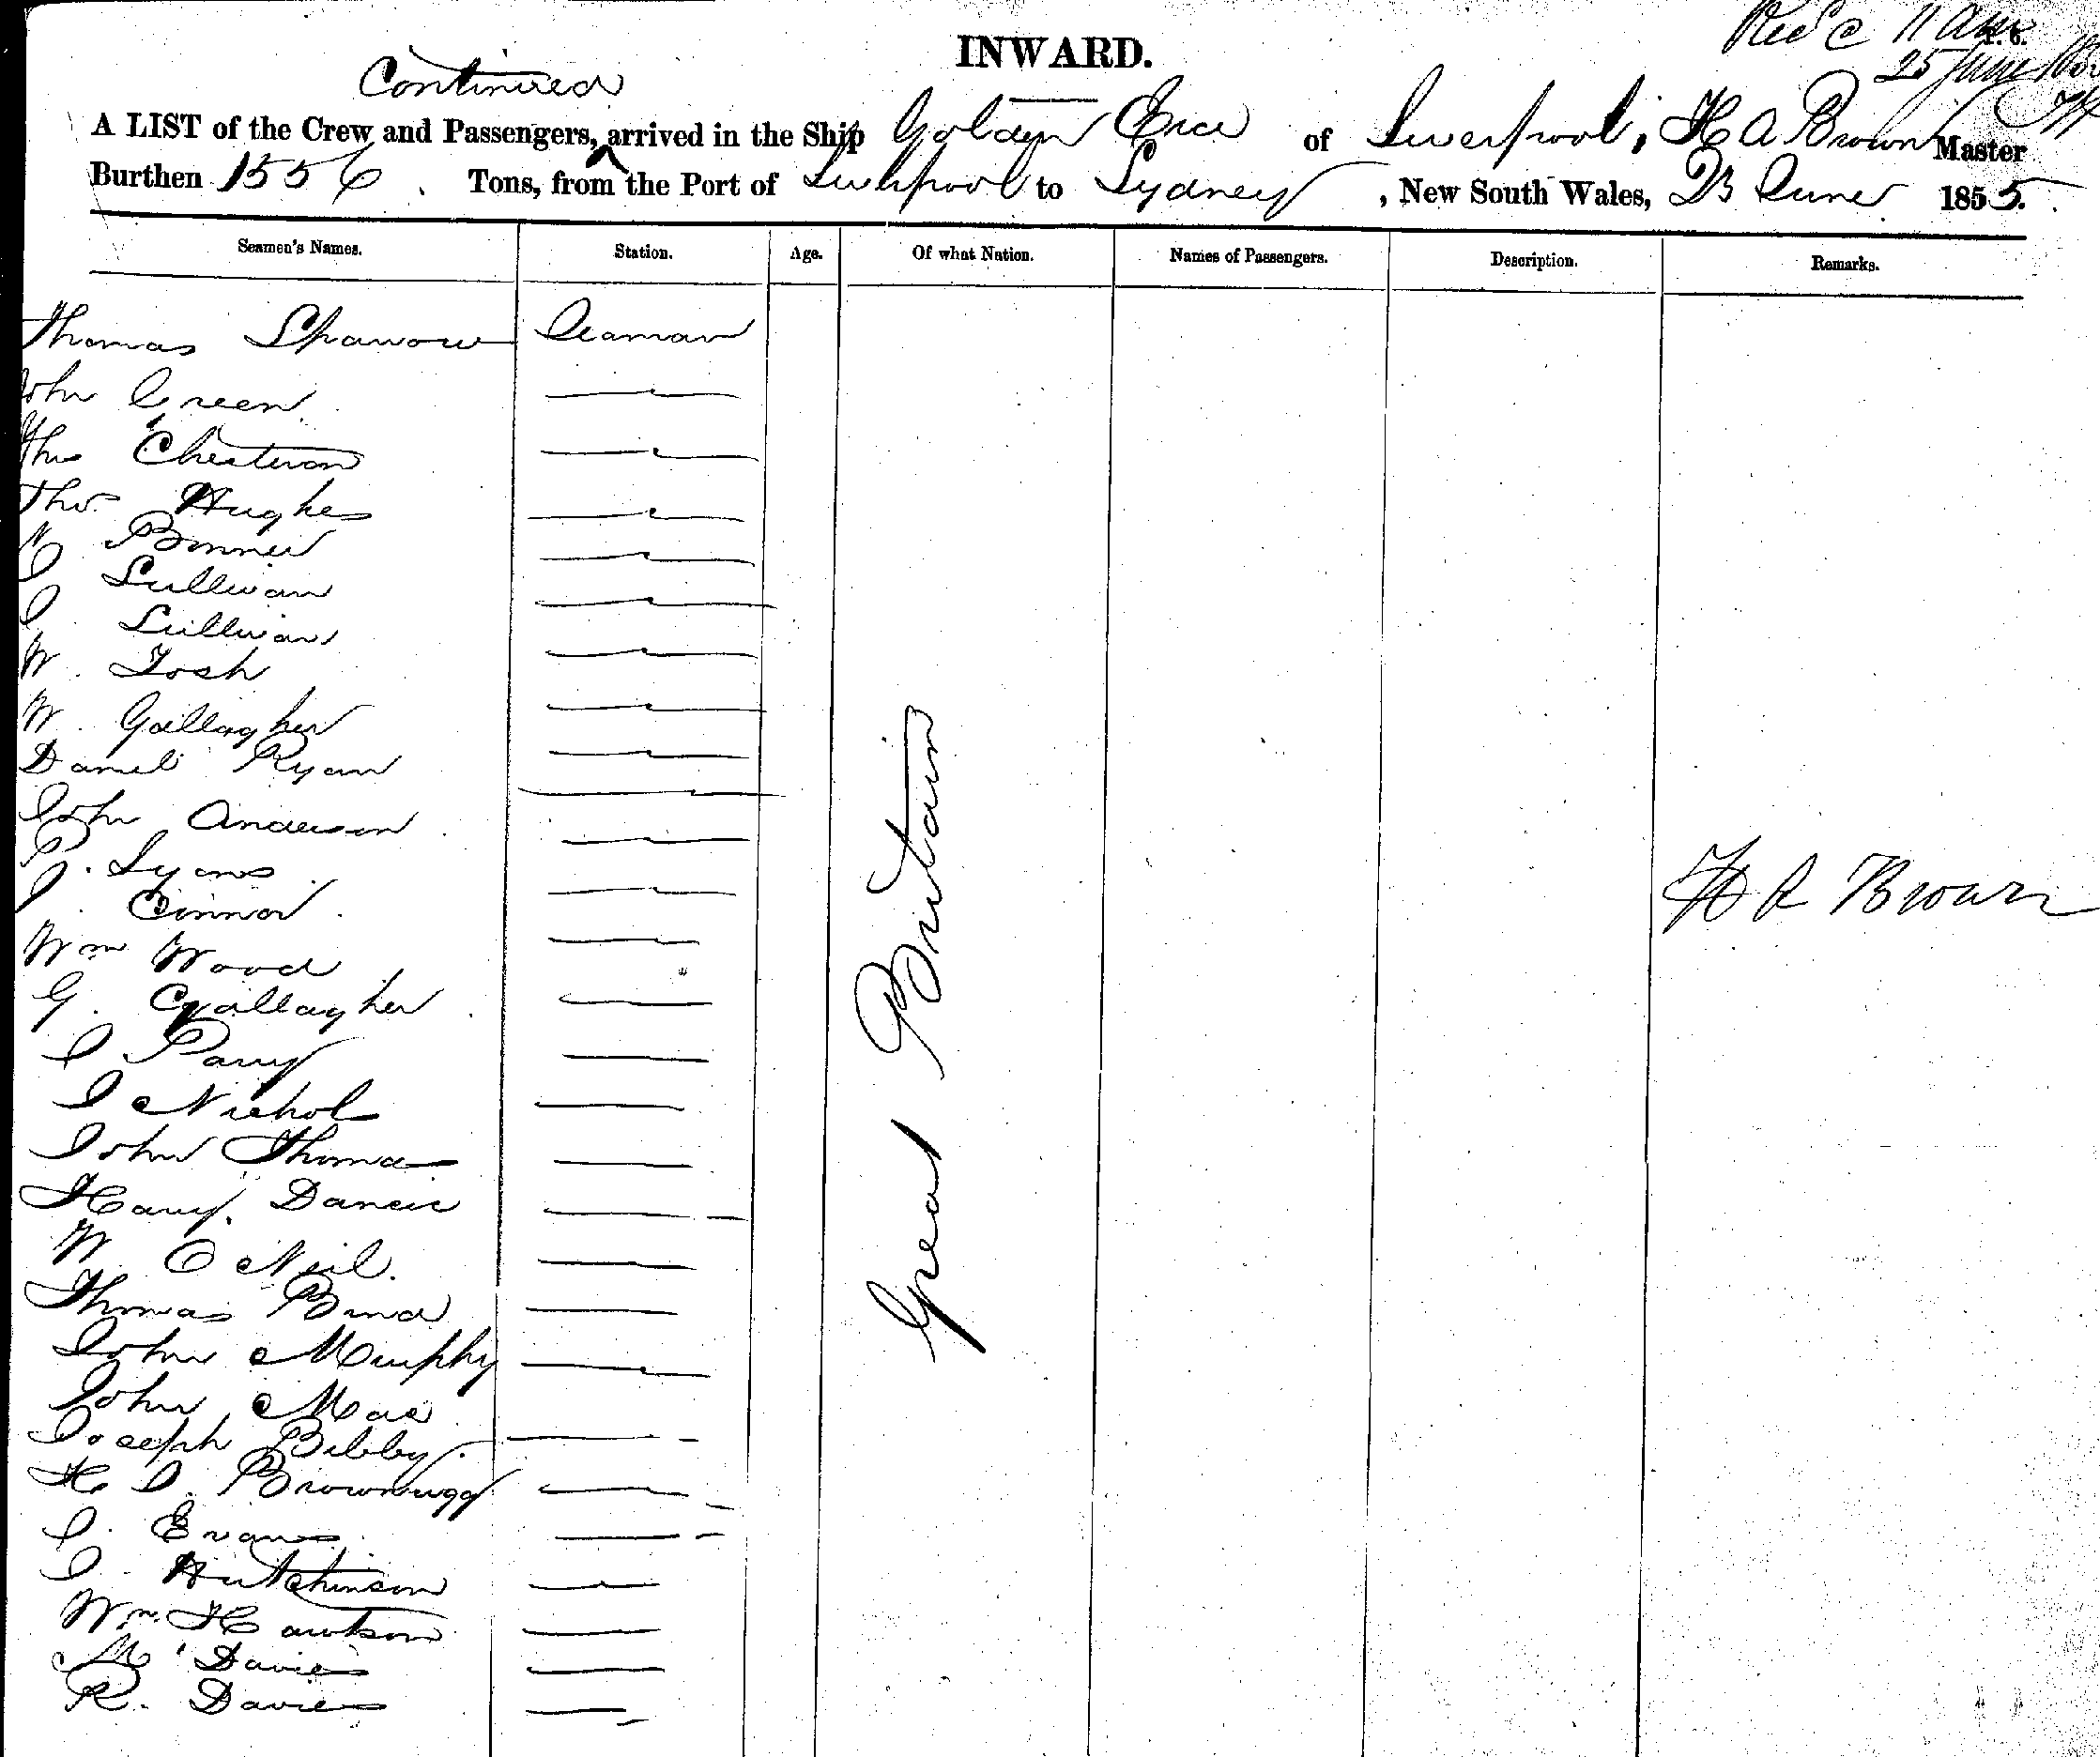 INWARD.
Rec'd 11 am
25 June
Continued
A LIST of the Crew and Passengers, arrived in the Ship Golden Era of Liverpool, H A Brown Master
Burthen 1556 Tons, from the Port of Liverpool to Sydney, New South Wales, 23 June 1855.
Seamen's Names. Station. Age. Of what Nation. Names of Passengers. Description. Remarks.
Thomas Sparrow Seaman
John Green
Hughes
Sullivan
J. Sullivan
W. Tosh
W. Gallagher
Daniel Ryan
John Anderson
P. Lyons
J. Connor
Wm Wood
G. Gallagher
J Parry
J Nichol
John Thomas
Harry
W. O Neil.
Thomas
John Murphy
John Mac
Joseph Bibby.
H J. Brownrigg
J. Evans
J. Hutchinson
Wm. Hawkson
M Davies
R. Davies
Great Britain
H A Brown